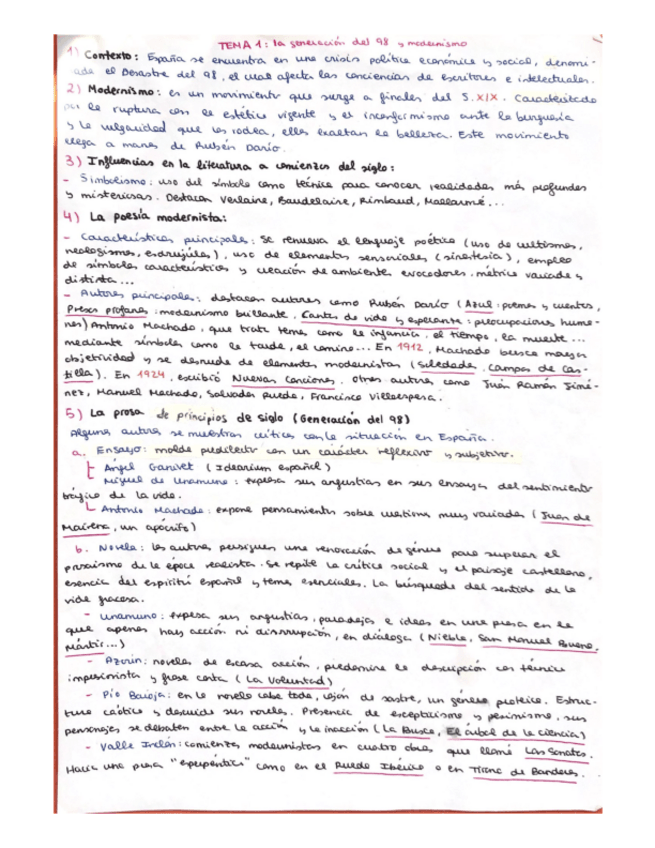 TEMA 1: la generación del 98 y modernismo
1) Contexto: España se encuentra en una crisis política económica y social, denomi-
ada el Desastre del 98, el cual afecta las conciencias de escritores e intelectuales.
2) Modernismo: es un movimiento que surge a finales del S.XIX. Caracterizado
por la ruptura con la estética vigente y el inconformismo ante la burguesía
y la vulgaridad que los rodea, ellos exaltan la belleza. Este movimiento
llega a manos de Rubén Darío.
3) Influencias en la literatura a comienzos del siglo:
- Simbolismo: uso del símbolo como técnica para conocer realidades más profundas
y misteriosas. Destacan Verlaine, Baudelaire, Rimbaud, Mallarmé...
4) La poesía modernista:
- Características principales: Se renueva el lenguaje poético (uso de cultismos,
neologismos, esdrújulas), uso de elementos sensoriales (sinestesia), empleo
de símbolos característicos y creación de ambientes evocadores. métrica variada y
distinta...
- Autores principales: destacan autores como Rubén Darío (Azul: poemas y cuentos,
Prosas profanas: modernismo brillante, Cantos de vida y esperanza: preocupaciones huma-
nas) Antonio Machado, que trata temas como la infancia, el tiempo, la muerte...
mediante símbolos como la tarde, el camino... En 1912, Machado busca mayor
objetividad y se desnuda de elementos modernistas (Soledades, Campos de Cas-
tilla). En 1924, escribió Nuevas Canciones. Otros autores como Juan Ramón Jimé-
nez, Manuel Machado, Salvador Rueda, Francisco Villaespesa.
5) La prosa de principios de siglo (Generación del 98)
Algunos autores se muestran críticos con la situación en España.
a. Ensayo: molde predilecto con un carácter reflexivo y subjetivo.
Ángel Ganivet (Idearium español)
Miguel de Unamuno: expresa sus angustias en sus ensayos del sentimiento
trágico de la vida.
Antonio Machado: expone pensamientos sobre cuestiones muy variadas (Juan de
Mairena, un apócrifo)
b. Novela: los autores persiguen una renovación de género para superar el
prosaísmo de la época realista. Se repite la crítica social y el paisaje castellano,
esencia del espíritu español y temas esenciales. La búsqueda del sentido de la
vida fracasa.
- Unamuno: expresa sus angustias, paradojas e ideas en una prosa en la
que apenas hay acción ni descripción, en diálogo (Niebla, San Manuel Bueno,
Mártir...)
- Azorín: novelas de escasa acción, predomina la descripción con técnica
impresionista y frase corta (La Voluntad)
- Pío Baroja: en la novela cabe todo, cajón de sastre, un género proteico. Estruc-
tura caótica y descuida sus novelas. Presencia de escepticismo y pesimismo, sus
personajes se debaten entre la acción y la inacción (La Busca, El árbol de la ciencia)
- Valle Inclán: comienzos modernistas en cuatro obras que llamó Las Sonatas.
Hacia una prosa "esperpéntica" como en el Ruedo Ibérico o en Tirano de Banderas.